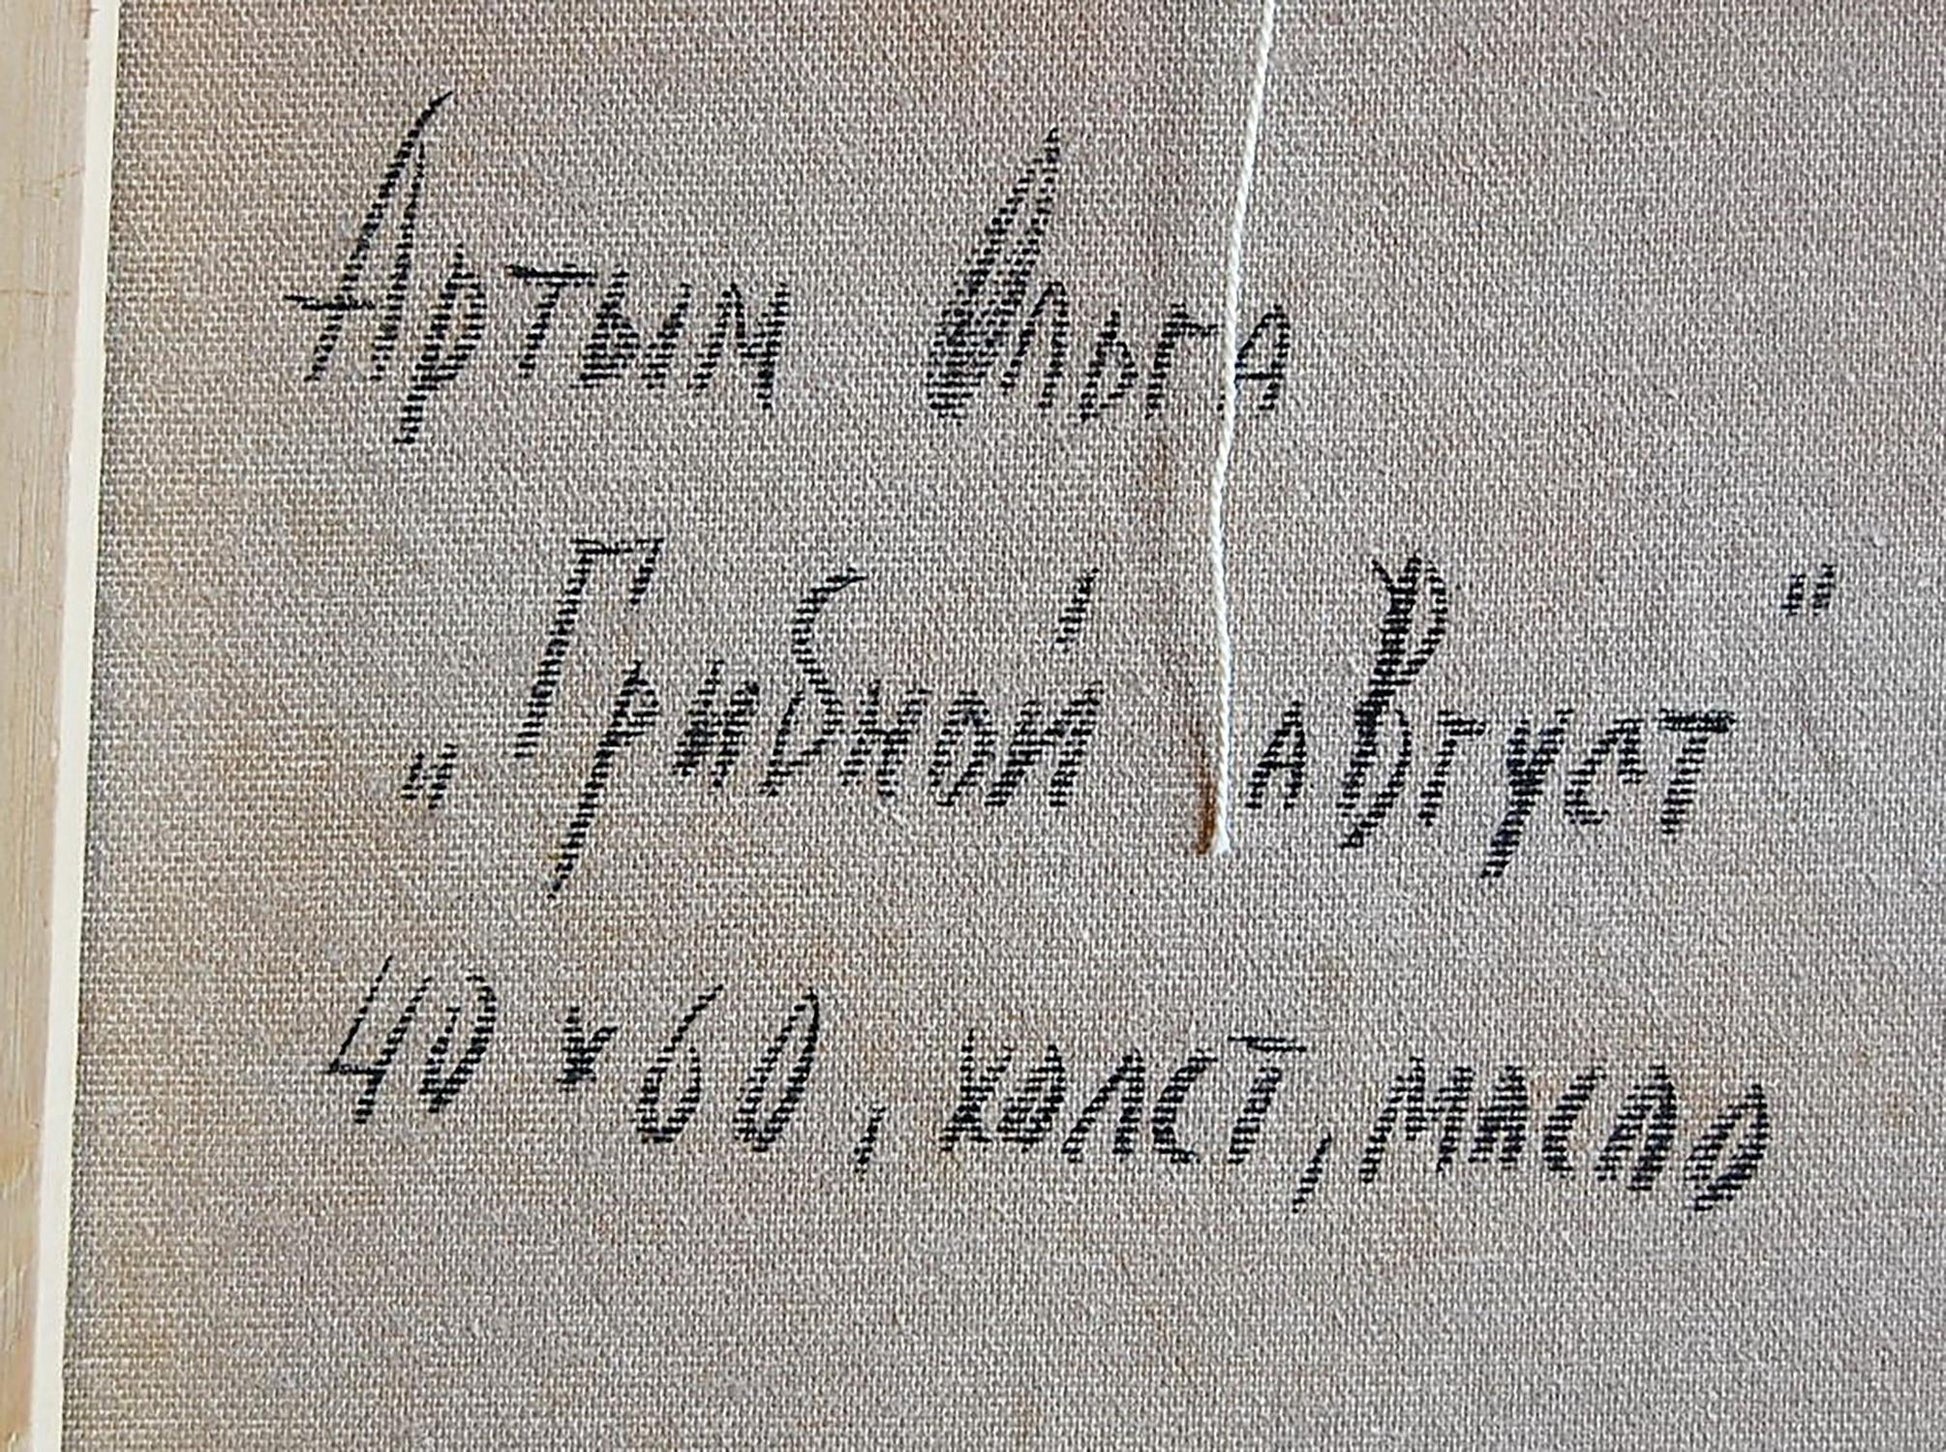 Артым Ольга
„Грибной август"
40 х 60, холст, масло